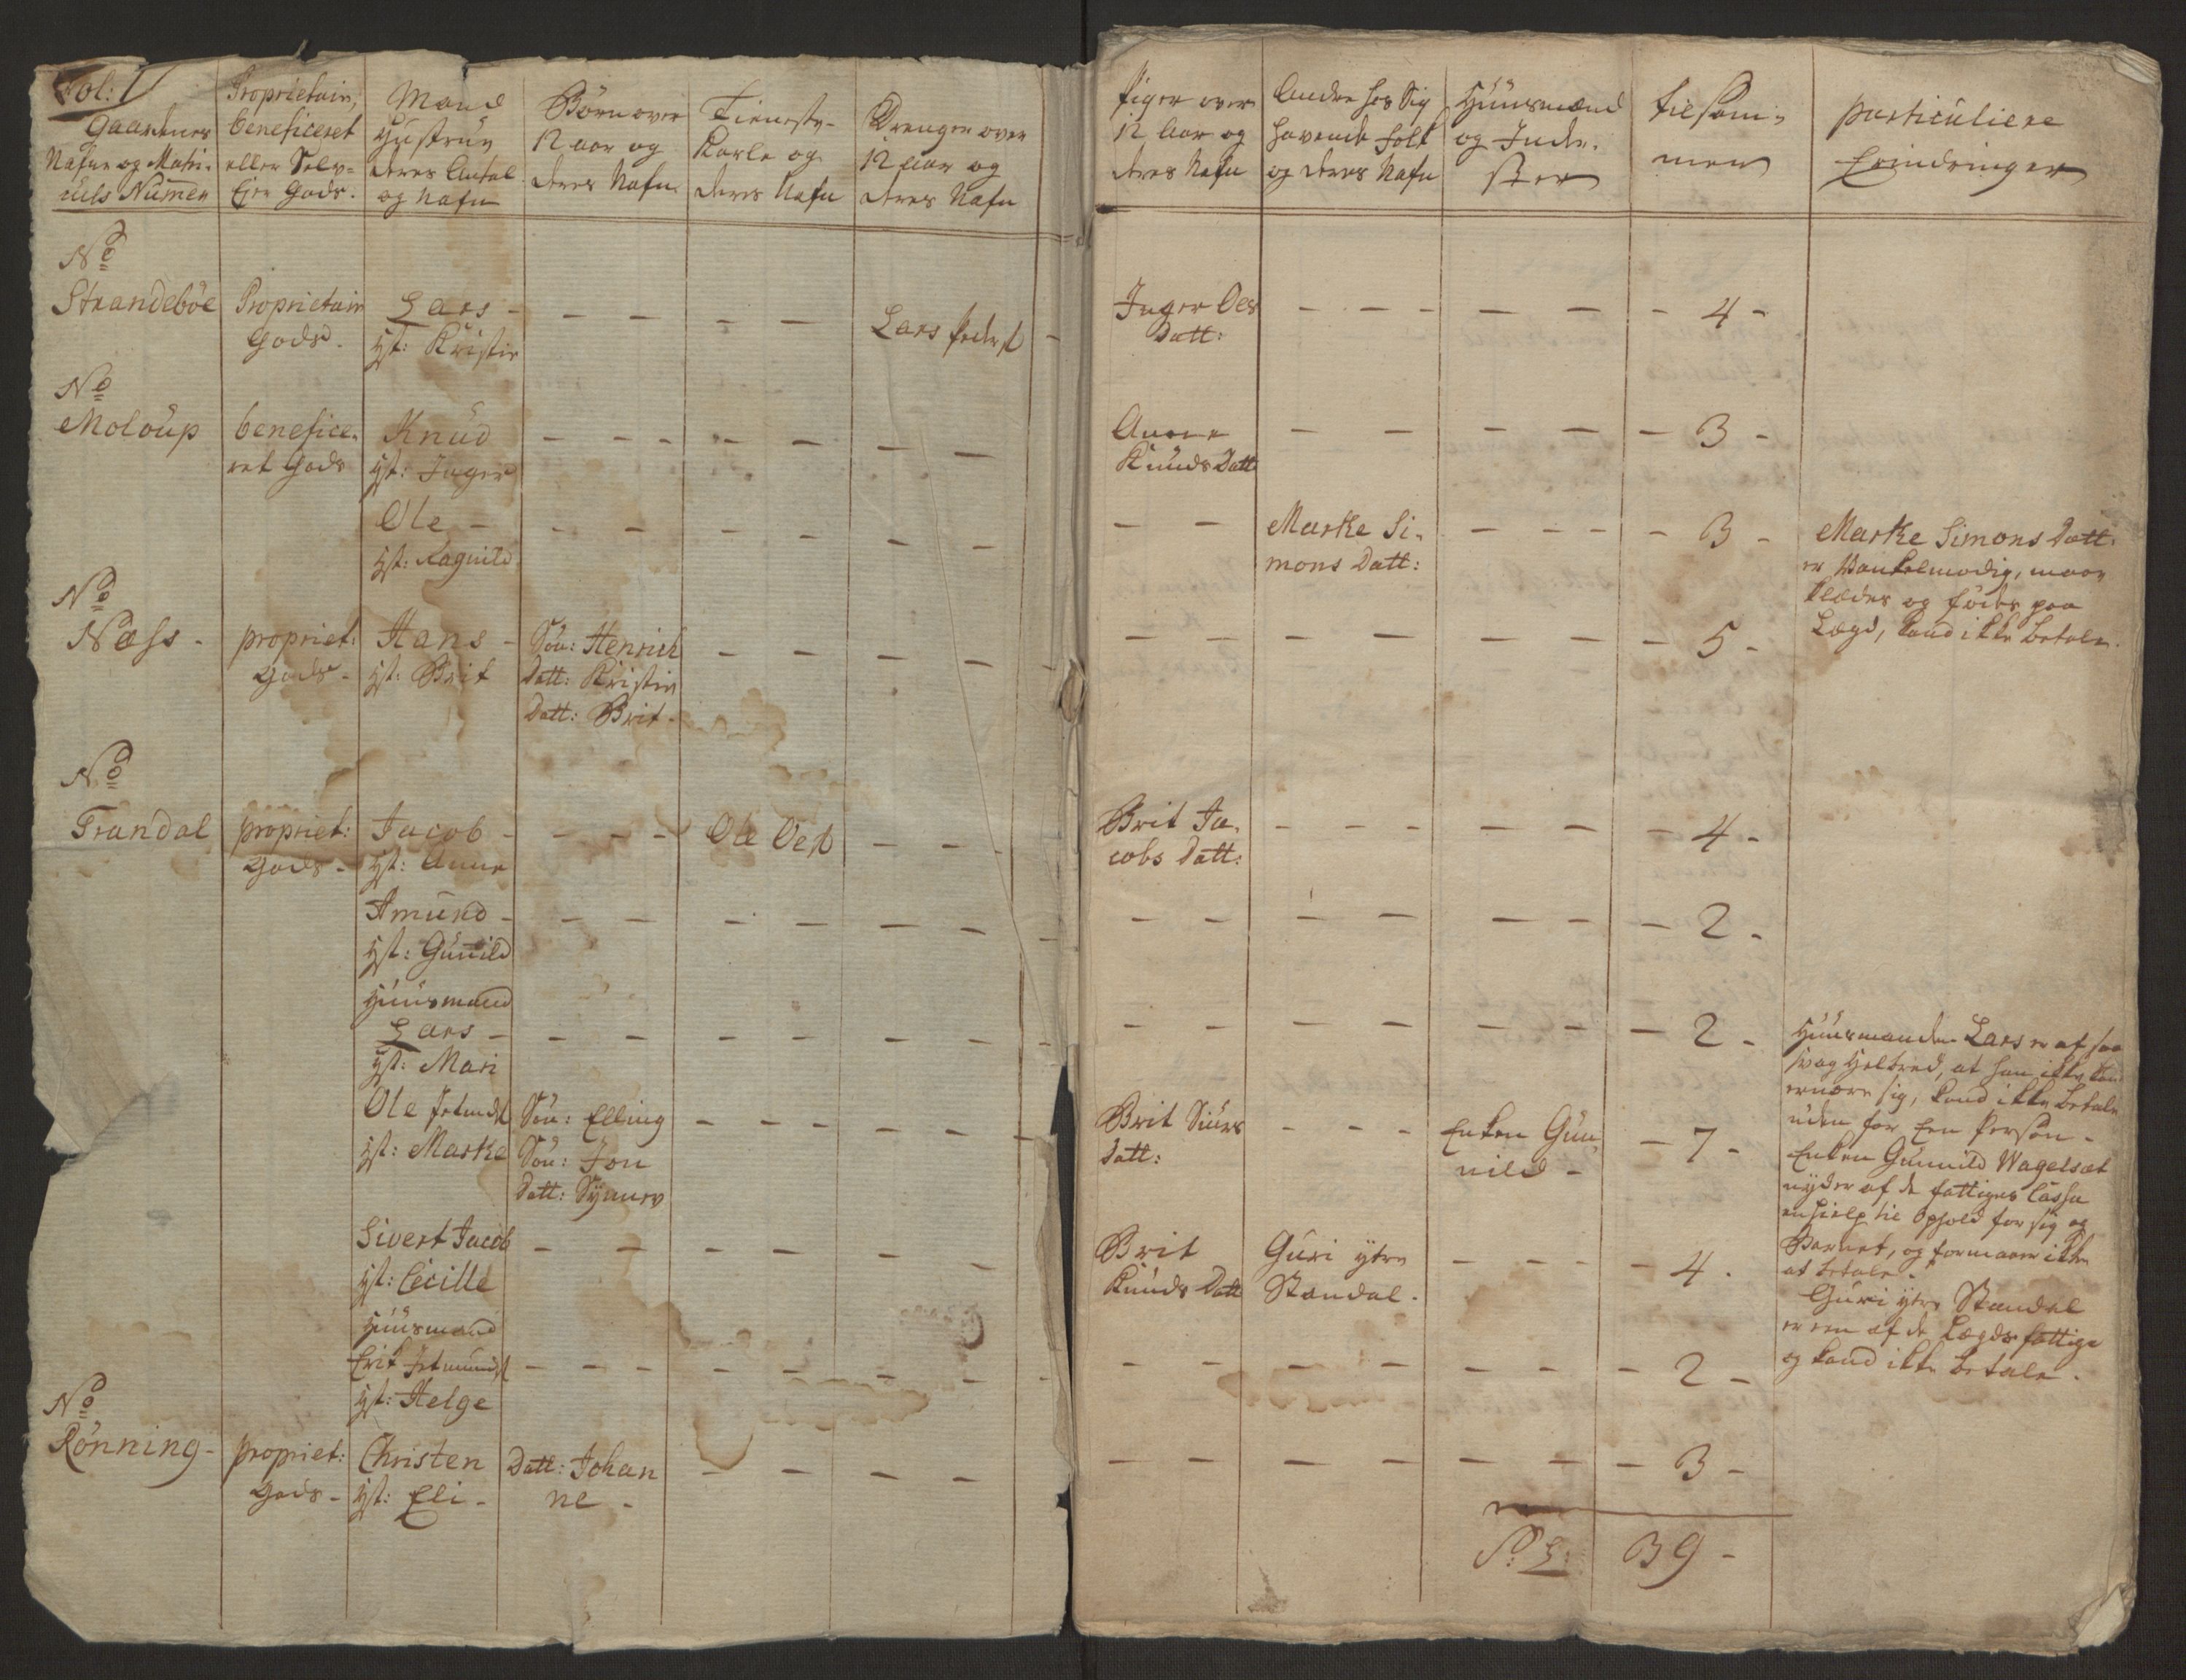 Fol: 1
Gaardenes
Nafne og Matri-
culs Numer
Proprietair,
beneficeret
eller Selv-
Eier Gods.
Mand
Hustrue
deres Antal
og Nafn
Börn over
12 aar og
deres Nafn
Tieneste-
Karle og
deres Nafn
Drenger over
12 Aar og
deres Nafn
Piger over
12 Aar og
deres Nafn
Andre hos Sig
havende Folk
og deres Nafn
Huusmænd
og Inder-
ster
tilsam-
men
particuliere
Erindringer
No
Strandeböe
Proprietair
Gods.
Lars -
Hst: Kristin
Lars Peders
Inger Oles
Datt:
- 4 -
No
Moloup
benefice-
ret Gods
Knud
Hst: Inger
Anne
Knuds Datt
- 3 -
Ole -
Hst: Ragnild
Marke Si-
mons Datt:
- 3 -
Marke Simons Datt:
er Vankelmodig, maae
klædes og födes paa
Lægd, kand ikke betale.
No
Næss -
propriet:
Gods -
Hans -
Hst: Brit
Sön: Henrich
Datt: Kristin
Datt: Brit -
- 5 -
No
Trandal
propriet:
Gods -
Jacob -
Hst: Anne
Ole Oles
Brit Ja-
cobs Datt:
- 4 -
Amund -
Hst: Gunild
- 2 -
Huusmand
Lars -
Hst: Mari
- 2 -
Huusmanden Lars er af saa
svag Helbred, at han ikke kan
ernære sig, kand ikke betale
uden for Een Person -
Ole Jetmunds
Hst: Marke
Sön: Elling
Sön: Jon
Datt: Synnev
Brit Siurs
Datt:
Enken Gun-
nild -
- 7 -
Enken Gunnild Wagelsæt
nyder af de fattiges Cassa
en hielp til Ophold for sig og
Barnet, og formaaer ikke
at betale.
Sivert Jacob
Hst: Cécille
Brit
Knuds Datt
Guri ytre
Standal.
- 4 -
Guri ytre Standal
er een af de Lægds fattige
og kand ikke betale.
Huusmand
Erik Jetmunds
Hst: Helge
- 2 -
No
Rönning -
propriet:
Gods -
Christen
Hst: Eli -
Datt: Johan
ne -
- 3 -
S: L: 39 -